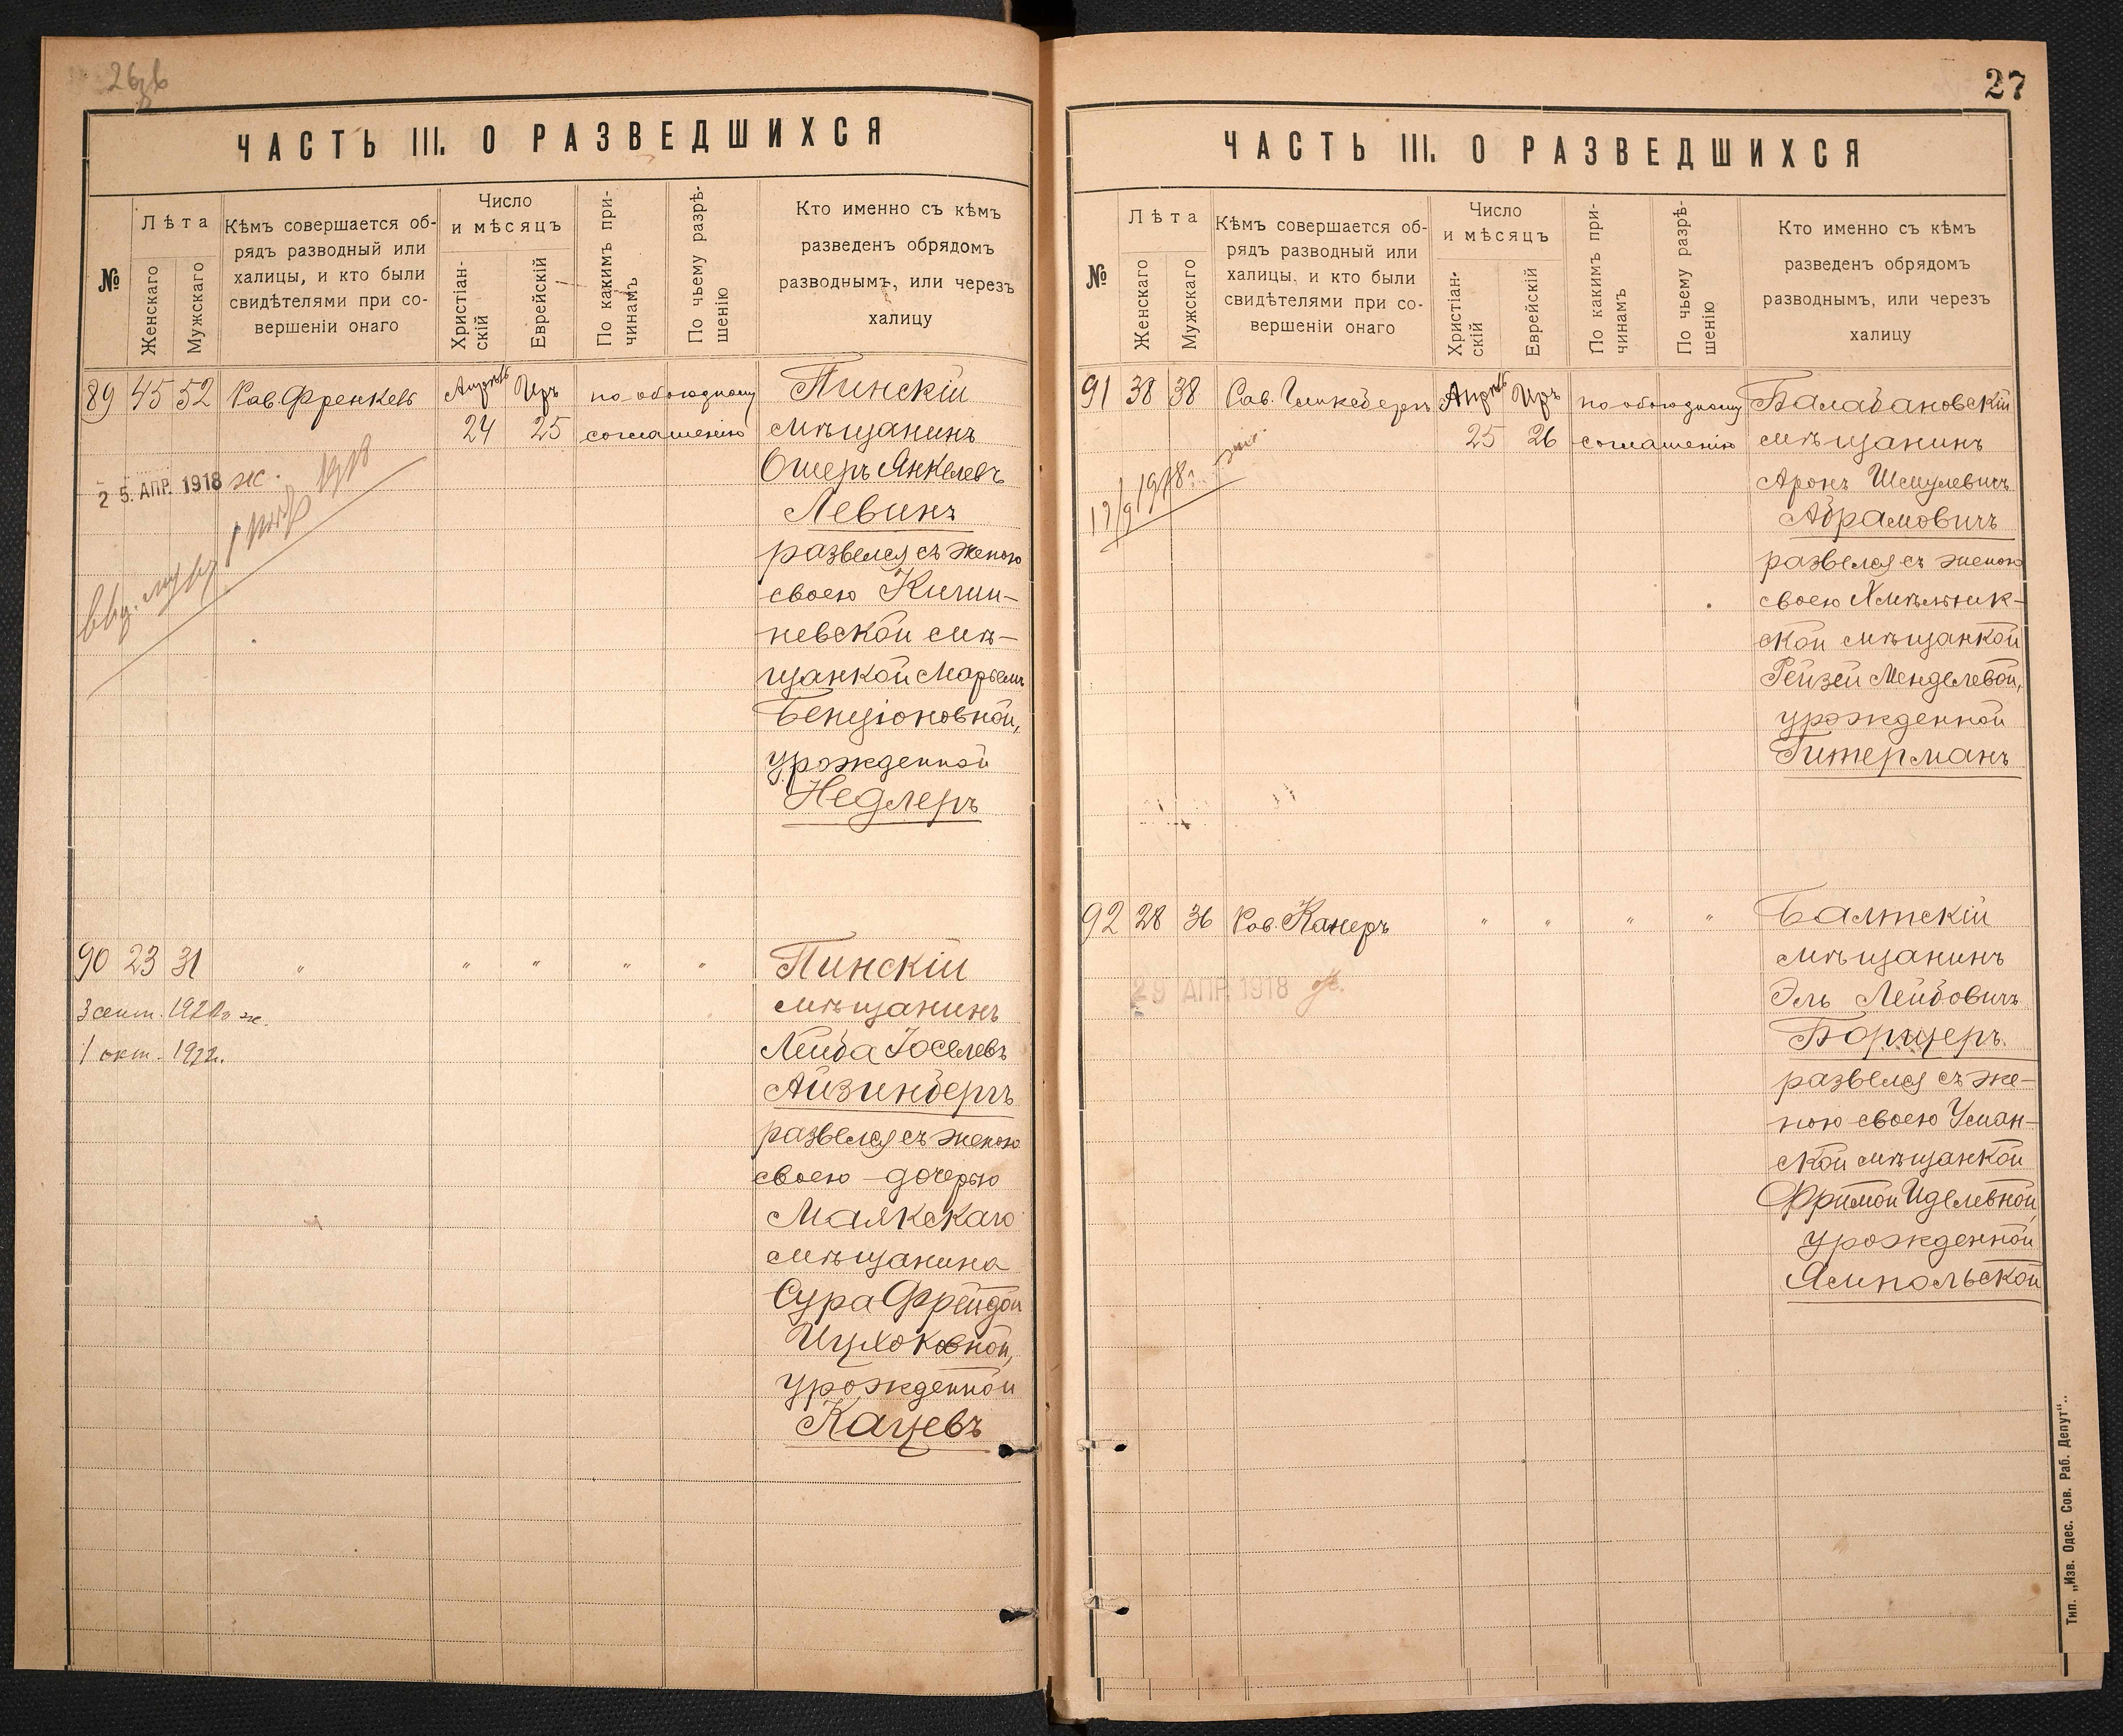 27
ЧАСТЬ III. О РАЗВЕДШИХСЯ
№
Лѣта
Женскаго
Мужскаго
Кѣмъ совершается об-
рядъ разводный или
халицы, и кто были
свидѣтелями при со-
вершеніи онаго
Число
и мѣсяцъ
Христіан-
скій
Еврейскій
По какимъ при-
чинамъ
По чьему разрѣ-
шенію
Кто именно съ кѣмъ
разведенъ обрядомъ
разводнымъ, или черезъ
халицу
89 45 52 Рав. Френкель Апрѣль Іръ по обоюдному Пинскій
24 25 согласенію мѣщанинъ
Ошеръ Янкелевъ
Левинъ
развелся съ женою
своею Кишин-
невской мѣ-
щанкой Марьемъ
Бенціоновной,
урожденной
Недлеръ
25. АПР. 1918 ж.
1918
90 23 31 " " " " " Пинскій
мѣщанинъ
Лейба Іоселевъ
Айзинбергъ
развелся съ женою
своею дочерью
Маякскаго
мѣщанина
Сура Фрейдой
Ицхоковной,
урожденной
Кацевъ
3 сент. ж.
1 окт. 1922.
ЧАСТЬ III. О РАЗВЕДШИХСЯ
№
Лѣта
Женскаго
Мужскаго
Кѣмъ совершается об-
рядъ разводный или
халицы, и кто были
свидѣтелями при со-
вершеніи онаго
Число
и мѣсяцъ
Христіан-
скій
Еврейскій
По какимъ при-
чинамъ
По чьему разрѣ-
шенію
Кто именно съ кѣмъ
разведенъ обрядомъ
разводнымъ, или черезъ
халицу
91 38 38 Рав. Апрѣль Іръ по обоюдному Балабановскій
25 26 согласенію мѣщанинъ
Аронъ Шмулевичъ
Абрамовичъ
развелся съ женою
своею Хмѣльник-
ской мѣщанкой
Рейзей Менделевой,
урожденной
Гитерманъ
1918 г.
92 28 36 Рав. Канеръ " " " " Балтскій
мѣщанинъ
Эль Лейбовичъ
Борщеръ
развелся съ же-
ною своею Уман-
ской мѣщанкой
Фримой Иделевной,
урожденной
Ямпольской
29 АПР. 1918 ж.
Тип. „Изв. Одес. Сов. Раб. Депут".